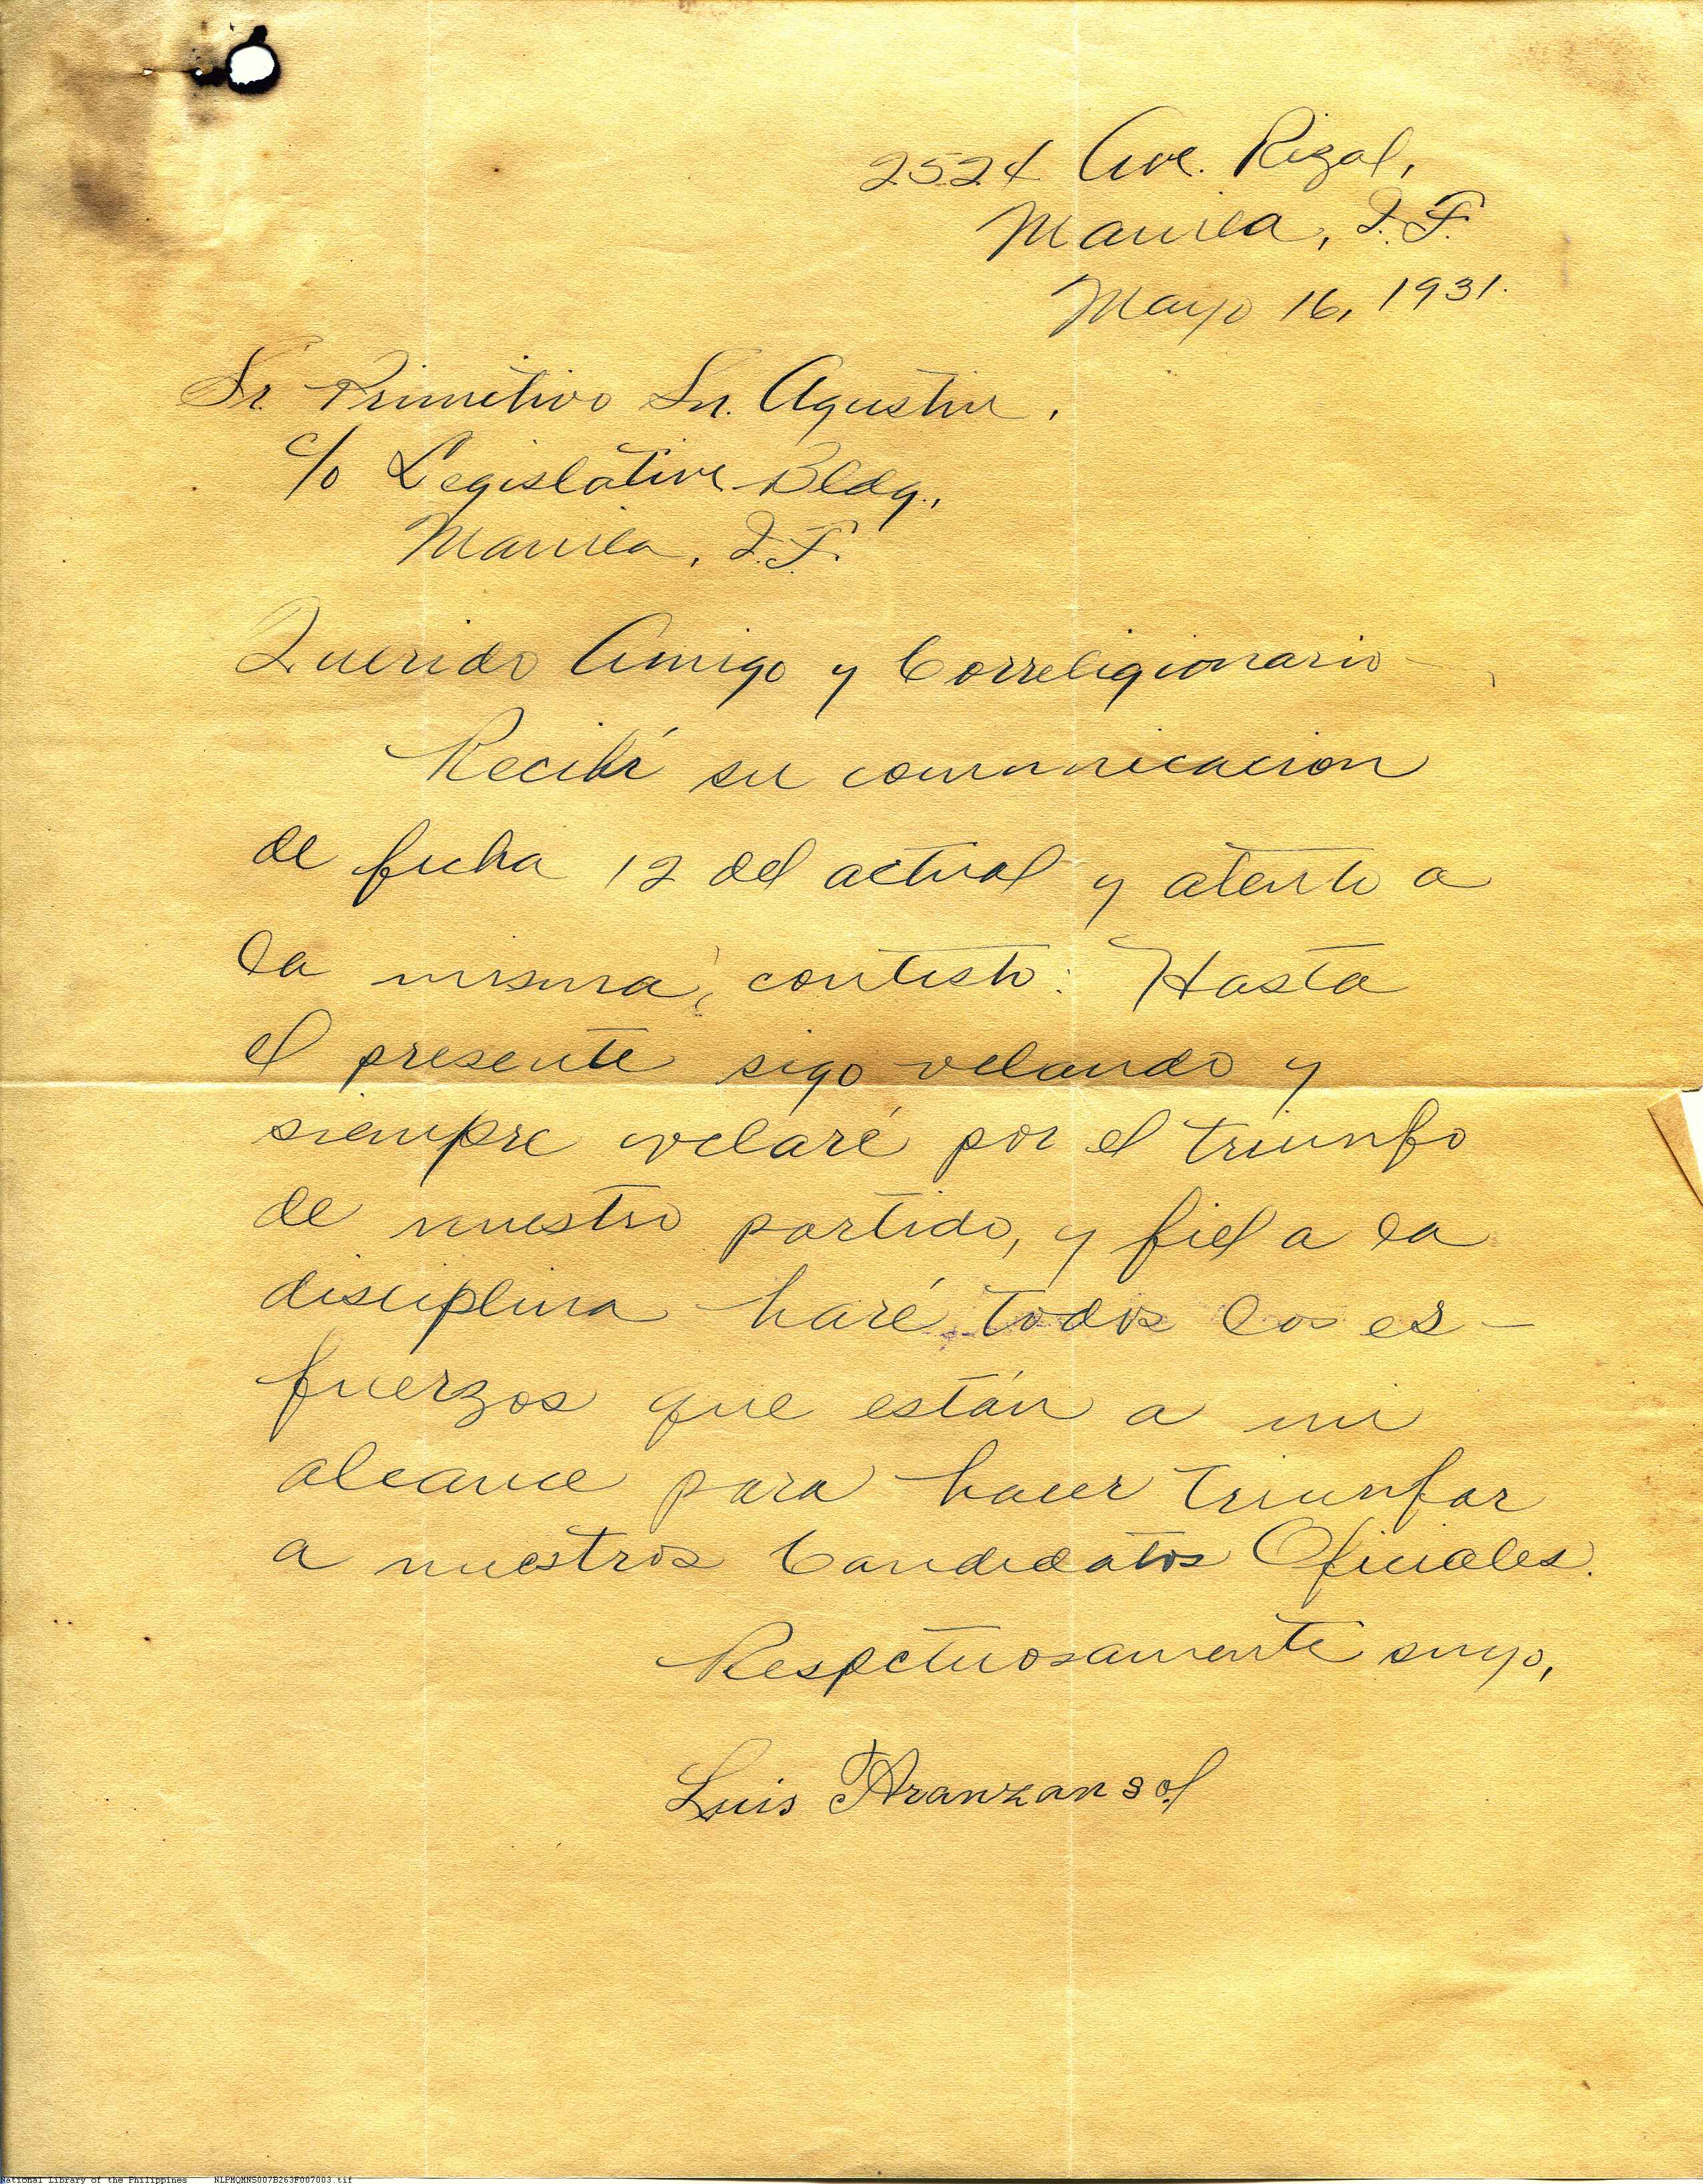 2524 Ave. Rizal,
Manila, I.F.
Mayo 16, 1931.
Sr. Primitivo Sn. Agustin,
c/o Legislative Bldg.,
Manila, I.F.
Querido Amigo y Correligionario
Recibí su comunicacion
de fecha 12 del actual y atento a
la misma, contesto: Hasta
el presente sigo velando y
siempre velaré por el triunfo
de nuestro partido, y fiel a la
disciplina haré todos los es-
fuerzos que están a mi
alcance para hacer triunfar
a nuestros Candidatos Oficiales.
Respetuosamente suyo,
Luis Aranzansol
National Library of the Philippines NLPMQMNS007B263F007003.tif